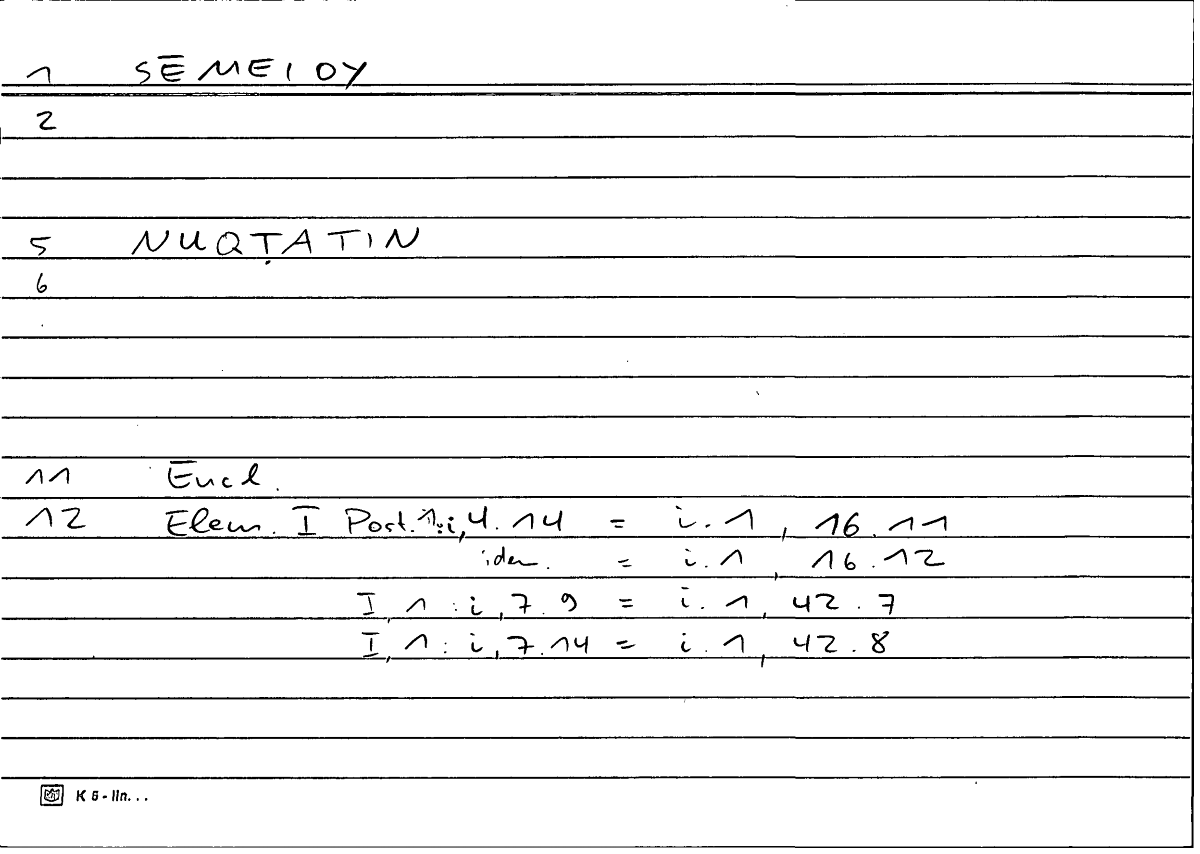 1 SĒMEIOY
2
5 NUQṬATIN
6
11 Eucl.
12 Elem. I Post. 1: i, 4.14 = i.1, 16.11
idem. = i.1, 16.12
I, 1: i, 7.9 = i.1, 42.7
I, 1: i, 7.14 = i.1, 42.8
K 5 - lin...